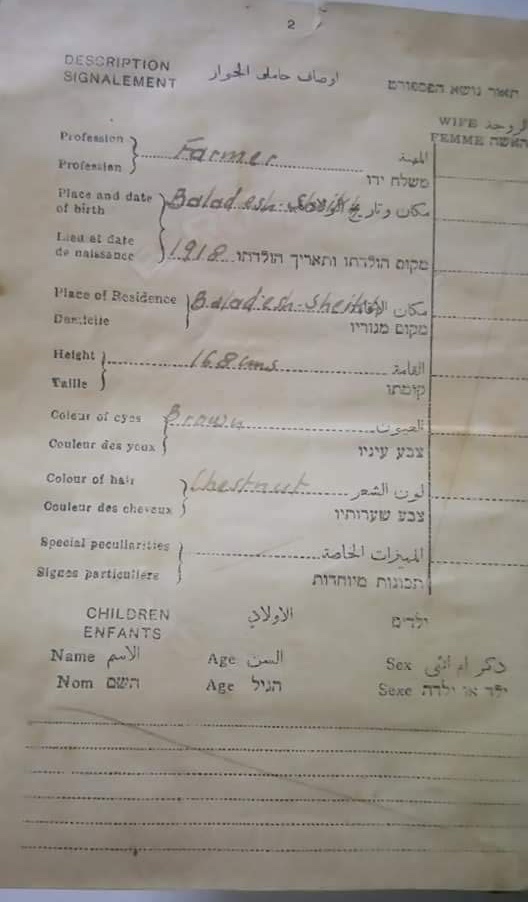 2
DESCRIPTION
SIGNALEMENT اوصاف حامل الجواز תאור נושא הפספורט
WIFE الزوجة
FEMME האשה
Profession Farmer المهنة
Profession משלח ידו
Place and date of birth Baladesh-Sheikh مكان وتاريخ
Lieu et date de naissance 1918 מקום הולדתו ותאריך הולדתו
Place of Residence Baladesh-Sheikh مكان
Domicile מקום מגוריו
Height 168 cms القامة
Taille קומתו
Colour of eyes Brown العيون
Couleur des yeux צבע עיניו
Colour of hair Chestnut لون الشعر
Couleur des cheveux צבע שערותיו
Special peculiarities المميزات الخاصة
Signes particuliers תכונות מיוחדות
CHILDREN الاولاد ילדים
ENFANTS
Name الاسم Age السن Sex ذكر ام انثى
Nom השם Age הגיל Sexe ילד או ילדה